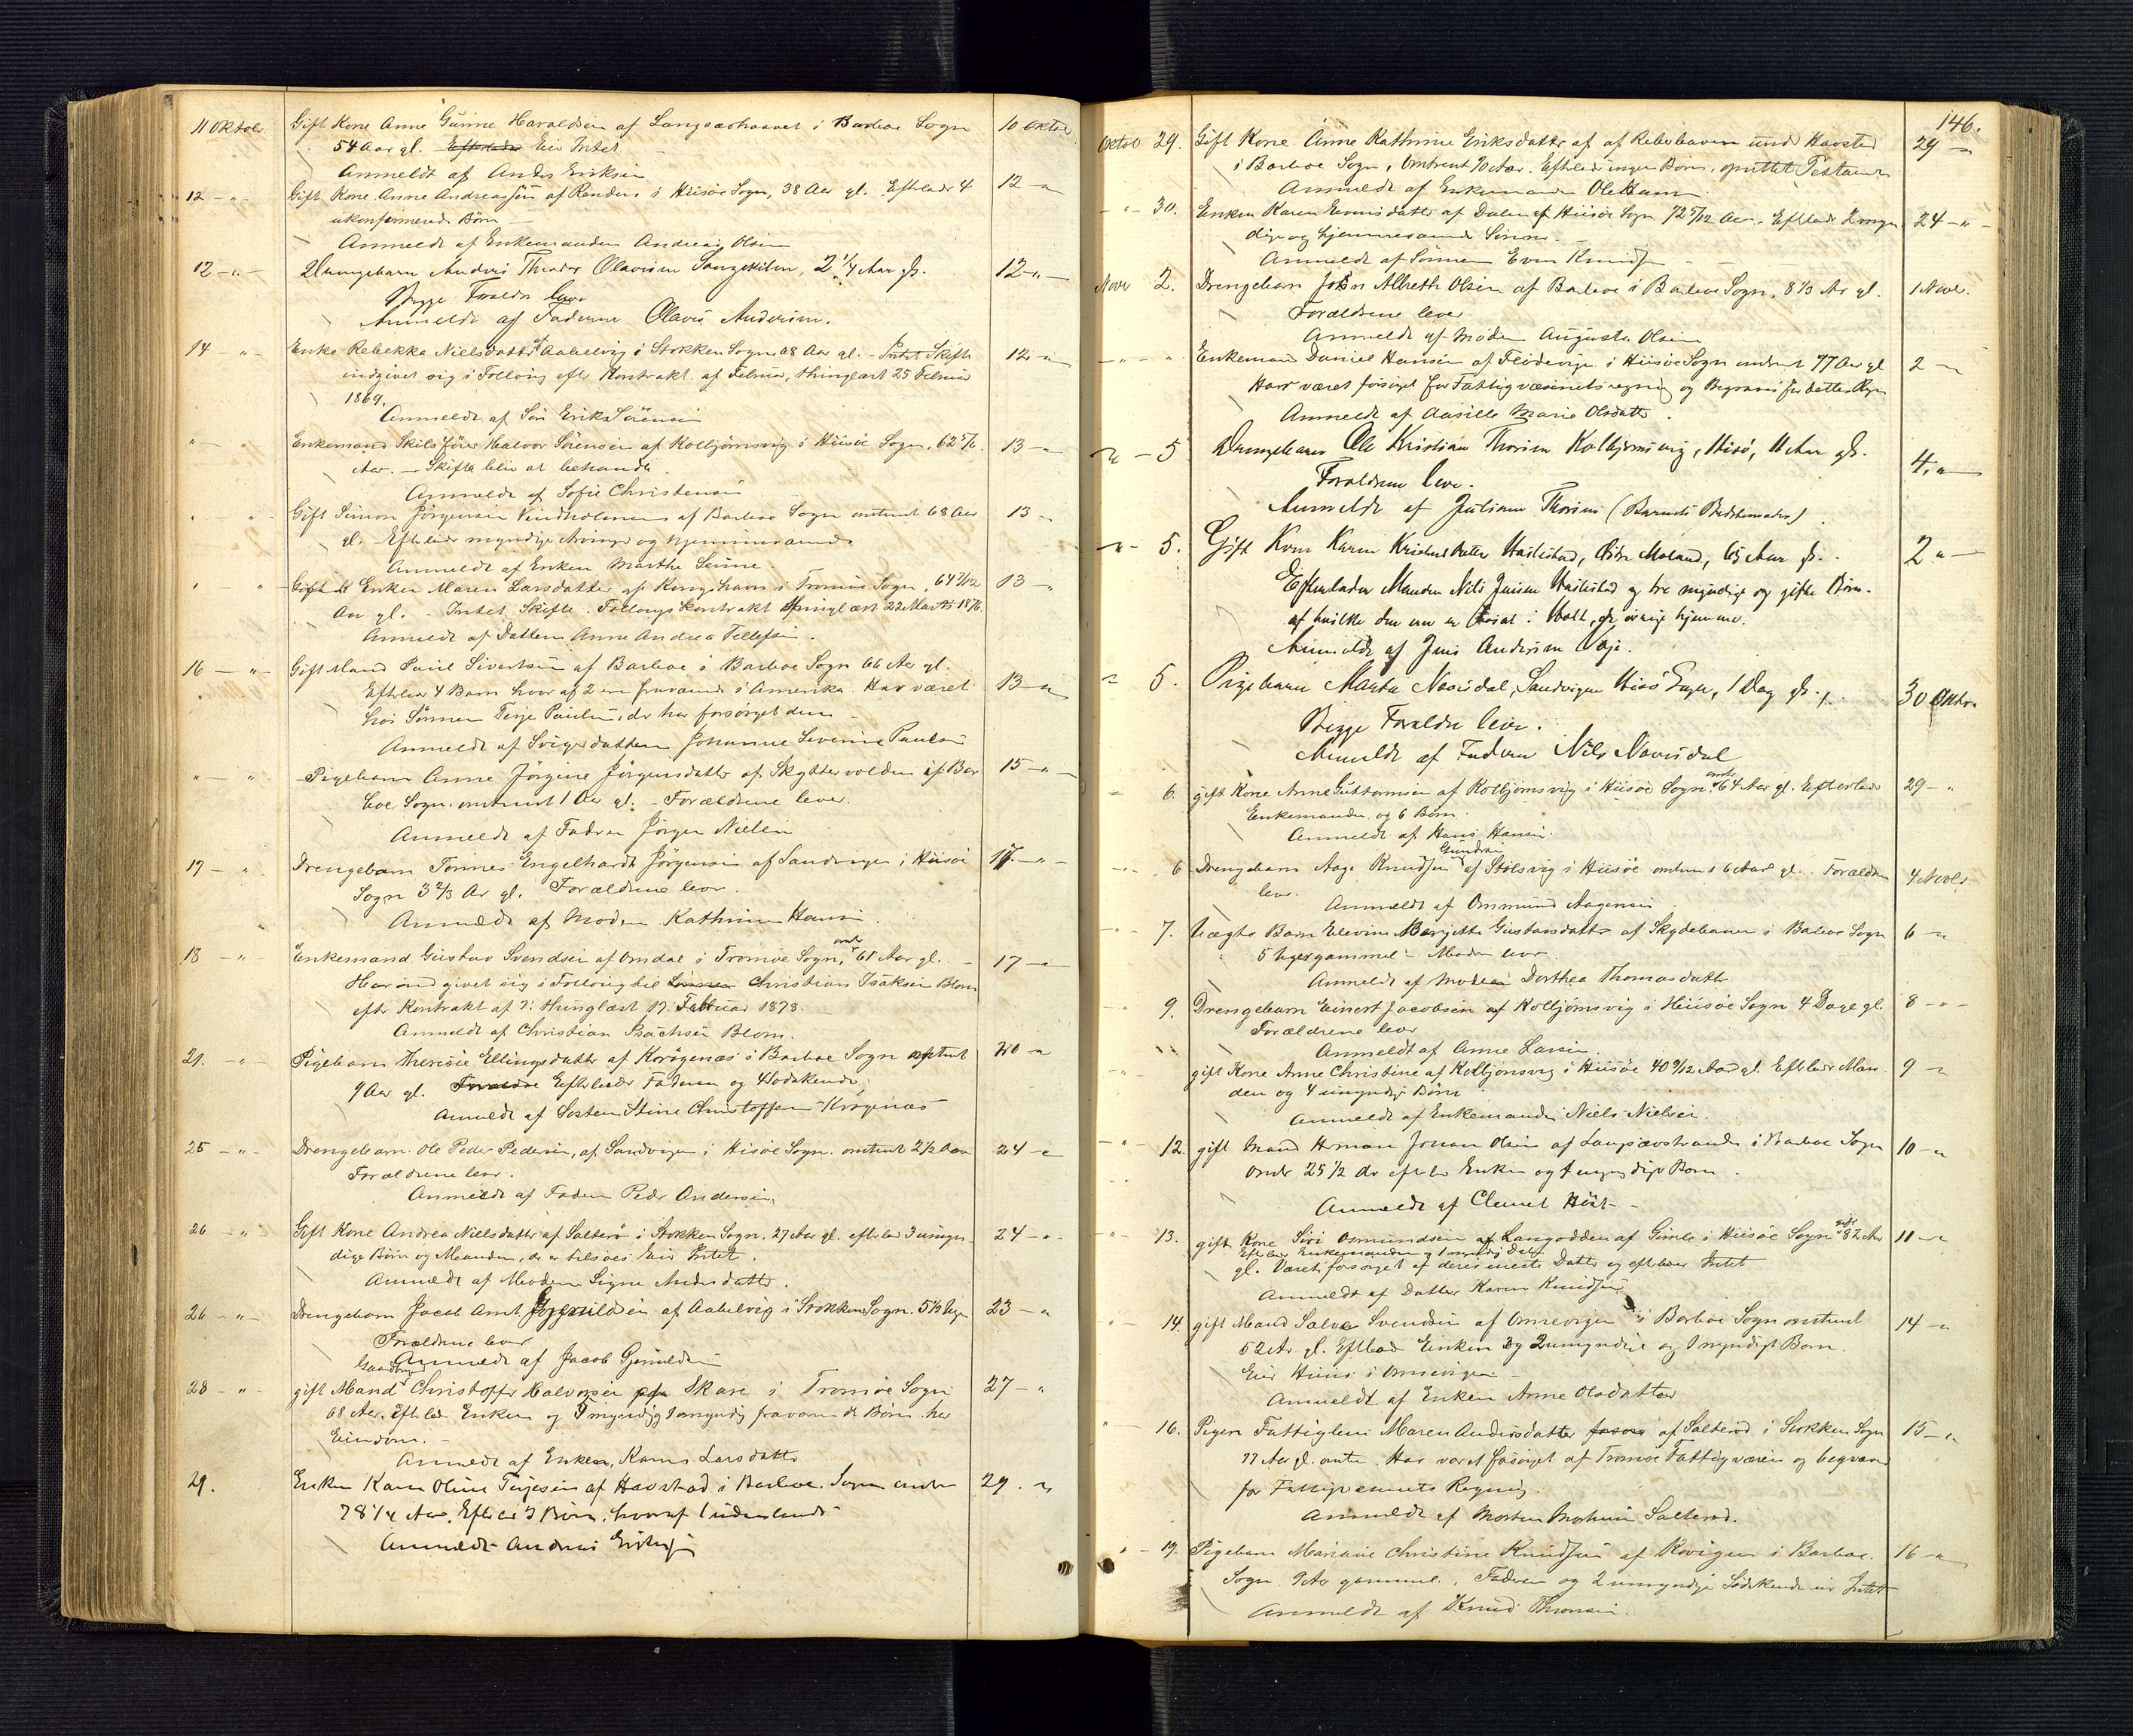 11 Oktob. Gift Kone Anne Gurine Haraldsen af i Barboe Sogn 10 Oktob
54 Aar gl. Efterlader Eier Intet
Anmeldt af Anders Eriksen
12 - " - Gift Kone Anne Andreassen af i Hiisøe Sogn, 38 Aar gl. Efterlader 4 12 - "
ukonfirmerede Børn
Anmeldt af Enkemanden Andreas Olsen
12 - " - Drengebarn Anders Theodor Olavsen Songekilen, 2 1/4 Aar gl. 12 - " -
Begge Forældre leve
Anmeldt af Faderen Olavs Andersen.
14 - " - Enke Rebekka Nielsdatter Aabelvig i Stokken Sogn 68 Aar gl. - Intet Skifte 12 - "
indgivet sig i Følloug efter Kontrakt af Februar, thinglæst 25 Februar
1869.
Anmeldt af Søn Erik Sörensen
" - " Enkemand Skibsfører Halvor Sörensen af Kolbjörnsvig i Hiisöe Sogn, 62 5/12 13 - "
Aar. - Skifte blir at behandle
Anmeldt af Sofie Christensen
" " Gift Simon Jörgensen Vindholmen af Barboe Sogn omtrent 68 Aar 13 -
gl. Efterlader myndige Arvinger og hjemmeværende
Anmeldt af Enken Marthe Serine
" " Enken Maren Larsdatter af Kongshavn i Tromøe Sogn, 64 7/12 13 - "
Aar gl. - Intet Skifte. Follougskontrakt thinglæst 22 Marts 1876.
Anmeldt af Datteren Anne Andrea Tellefsen.
16 - " Gift Mand Poul Sivertsen af Barboe i Barboe Sogn 66 Aar gl.
Efterlader 4 Børn hvoraf 2 er fraværende i Amerika. Har været 13 - "
hos Sønnen Terje Paulsen, der har forsørget dem -
Anmeldt af Svigerdatteren Johanne Severine Paulsen
" - " Pigebarn Anne Jörgine Jörgensdatter af Skyttervolden af Bar 15 - " -
boe Sogn, omtrent 1 Aar gl. - Forældrene lever.
Anmeldt af Faderen Jörgen Nielsen
17 - " Drengebarn Tønnes Engelhardt Jörgensen af Sandvigen i Hiisöe 17. - " -
Sogn 3 2/3 Ar gl. Forældrene lever.
Anmeldt af Moderen Kathrine Hansen
18 - " Enkemand Gustav Svendsen af Omdal i Tromøe Sogn, omtr 61 Aar gl. - 17 - "
Har indgivet sig i Følloug til Sønnen Christian Isaksen Blom
efter Kontrakt af thinglæst 17. Februar 1878.
Anmeldt af Christian Isachsen Blom.
21. - " Pigebarn Therese Ellingsdatter af i Barboe Sogn omtrent 20 - "
9 Aar gl. Forældre Efterlader Faderen og 4 Sødskende
Anmeldt af Søsteren Stine Christoffersen
25 - " - Drengebarn Ole Peder Pedersen, af Sandvigen i Hisöe Sogn. omtrent 2 1/2 Aar 24 - "
Forældrene lever.
Anmeldt af Faderen Peder Andersen.
26 - " - Gift Kone Andrea Nielsdatter af Salterö i Stokken Sogn. 27 Aar gl. efterlader 3 umyn 24 - " -
dige Børn og Manden, der er tilsøes Eier Intet.
Anmeldt af Moderen Signe Andersdatter.
26 - " - Drengebarn Jacob Arnt af Aabelvig i Stokken Sogn. 5 1/2 Uge 23 - "
Forældrene lever
Anmeldt af Jacob
28 - " - gift Mand Gaardbruger Christoffer Halvorsen paa Skare i Tromøe Sogn 27 - "
68 Aar. Efterlader Enken og 5 myndige 1 umyndig fraværende Børn. har
Eiendom. -
Anmeldt af Enken, Karen Larsdatter
29. Enken Karen Oline Terjesen af Havstad i Barboe Sogn omtrent 29. "
78 1/4 Aar. Efterlader 3 Børn, hvoraf 1 udenlands
Anmeldt Andreas
146.
Oktob 29. Gift Kone Anne Kathrine Eriksdatter af af Reberbanen under Havsted 29 - "
i Barboe Sogn, Omtrent 70 Aar. Efterlader ingen Børn, oprettet Testament
Anmeldt af Enkemanden Ole Hansen
- " - 30. Enken Karen Evensdatter af Dalen af Hiisöe Sogn 72 5/12 Aar. Efterlader 2 myn 24 - " -
dige og hjemmeværende Sønner. -
Anmeldt af Sønnen Even Knudsen
Novr 2. Drengebarn John Albreth Olsen af Barboe i Barboe Sogn, 8 1/3 Ar gl. 1 Novb.
Forældrene lever
Anmeldt af Moderen Augusta Olsen
- " - " Enkemand Daniel Hansen af Flödevigen i Hiisöe Sogn omtrent 77 Aar gl 2 - "
Har været forsørget for Fattigvæsenets regning og Begraves for dettes Regn
Anmeldt af Aasille Marie Olsdatter.
" - 5 Drengebarn Ole Kristian Thorsen Kolbjørnsvig, Hisö, 11 Aar gl. 4. " -
Forældrene leve.
Anmeldt af Juliane Thorsen (Barnets Bedstemoder)
- " - 5. Gift Kone Karen Kristensdatter Hastestad, Østre Moland, 65 Aar gl. 2 " -
Efterlader Manden Nils Jensen Hastestad og tre myndige og gifte Børn
af hvilke den ene er bosat i Holt, de øvrige hjemme.
Anmeldt af Jens Andersen Vaje.
" 5. Pigebarn Marta Navisdal, Sandvigen Hisö Sogn, 1 Dag gl. 30 Oktbr.
Begge Forældre leve.
Anmeldt af Faderen Nils Navisdal
" 6. gift Kone Anne Guttormsen af Kolbjörnsvig i Hiisöe Sogn. omtr 64 Aar gl. Efterlader 29 - "
Enkemanden og 6 Børn.
Anmeldt af Hans Hansen.
- " - 6 Drengebarn Aage Knudsen Gundersen af Stölsvig i Hiisöe omtrent 6 Aar gl. Forældrene 4 Novbr
lever.
Anmeldt af Ommund Aagensen
- " - 7. Uægte Barn Elevine Bergette Gustavsdatter af Skydebanen i Barboe Sogn 6 - "
5 Uger gammel - Moderen lever.
Anmeldt af Moderen Dorthea Thomasdatter
- " 9. Drengebarn Einert Jacobsen af Kolbjörnsvig i Hiisöe Sogn 4 Dage gl. 8 - " -
Forældrene lever
Anmeldt af Anne Larsen.
- " gift Kone Anne Christine af Kolbjörnsvig i Hiisöe 40 9/12 Aar gl. Efterlader Man 9 - "
den og 4 umyndige Børn
Anmeldt af Enkemanden Niels Nielsen.
- " - 12. gift Mand Herman Johan Olsen af Langsævstranden i Barboe Sogn 10 - "
Omtr 25 1/2 Ar efterlader Enken og 1 umyndige Børn.
Anmeldt af Clemet Höst -
- " - 13. gift Kone Siri Osmundsen af Langodden af Gimle i Hiisöe Sogn 82 Ar 11 - "
Efterlader Enkemanden og 1 myndig Datter
gl. Været forsørget af deres eneste Datter og efterlader Intet
Anmeldt af Datter Karen Knudsen
" - 14. gift Mand Salve Svendsen af Omrevigen i Barboe Sogn omtrent 14 - "
52 Ar gl. Efterlader Enken og 2 umyndige og 1 myndigt Barn.
Eier Huus i Omrevigen -
Anmeldt af Enken Anne Olsdatter
" 16. Pigen Fattiglem Maren Andersdatter af Salteröd i Stokken Sogn 15 - "
77 Aar gl. omtr. Har været forsørget af Tromøe Fattigvæsen og begraves
for Fattigvæsenets Regning.
Anmeldt af Morten Mortensen Salteröd.
" - 19. Pigebarn Mariane Christine Knudsen af Kovigen i Barboe. 16 - "
Sogn. 9 Ar gammel. Faderen og 2 umyndige Sødskende eier Intet
Anmeldt af Knud Thomsen.